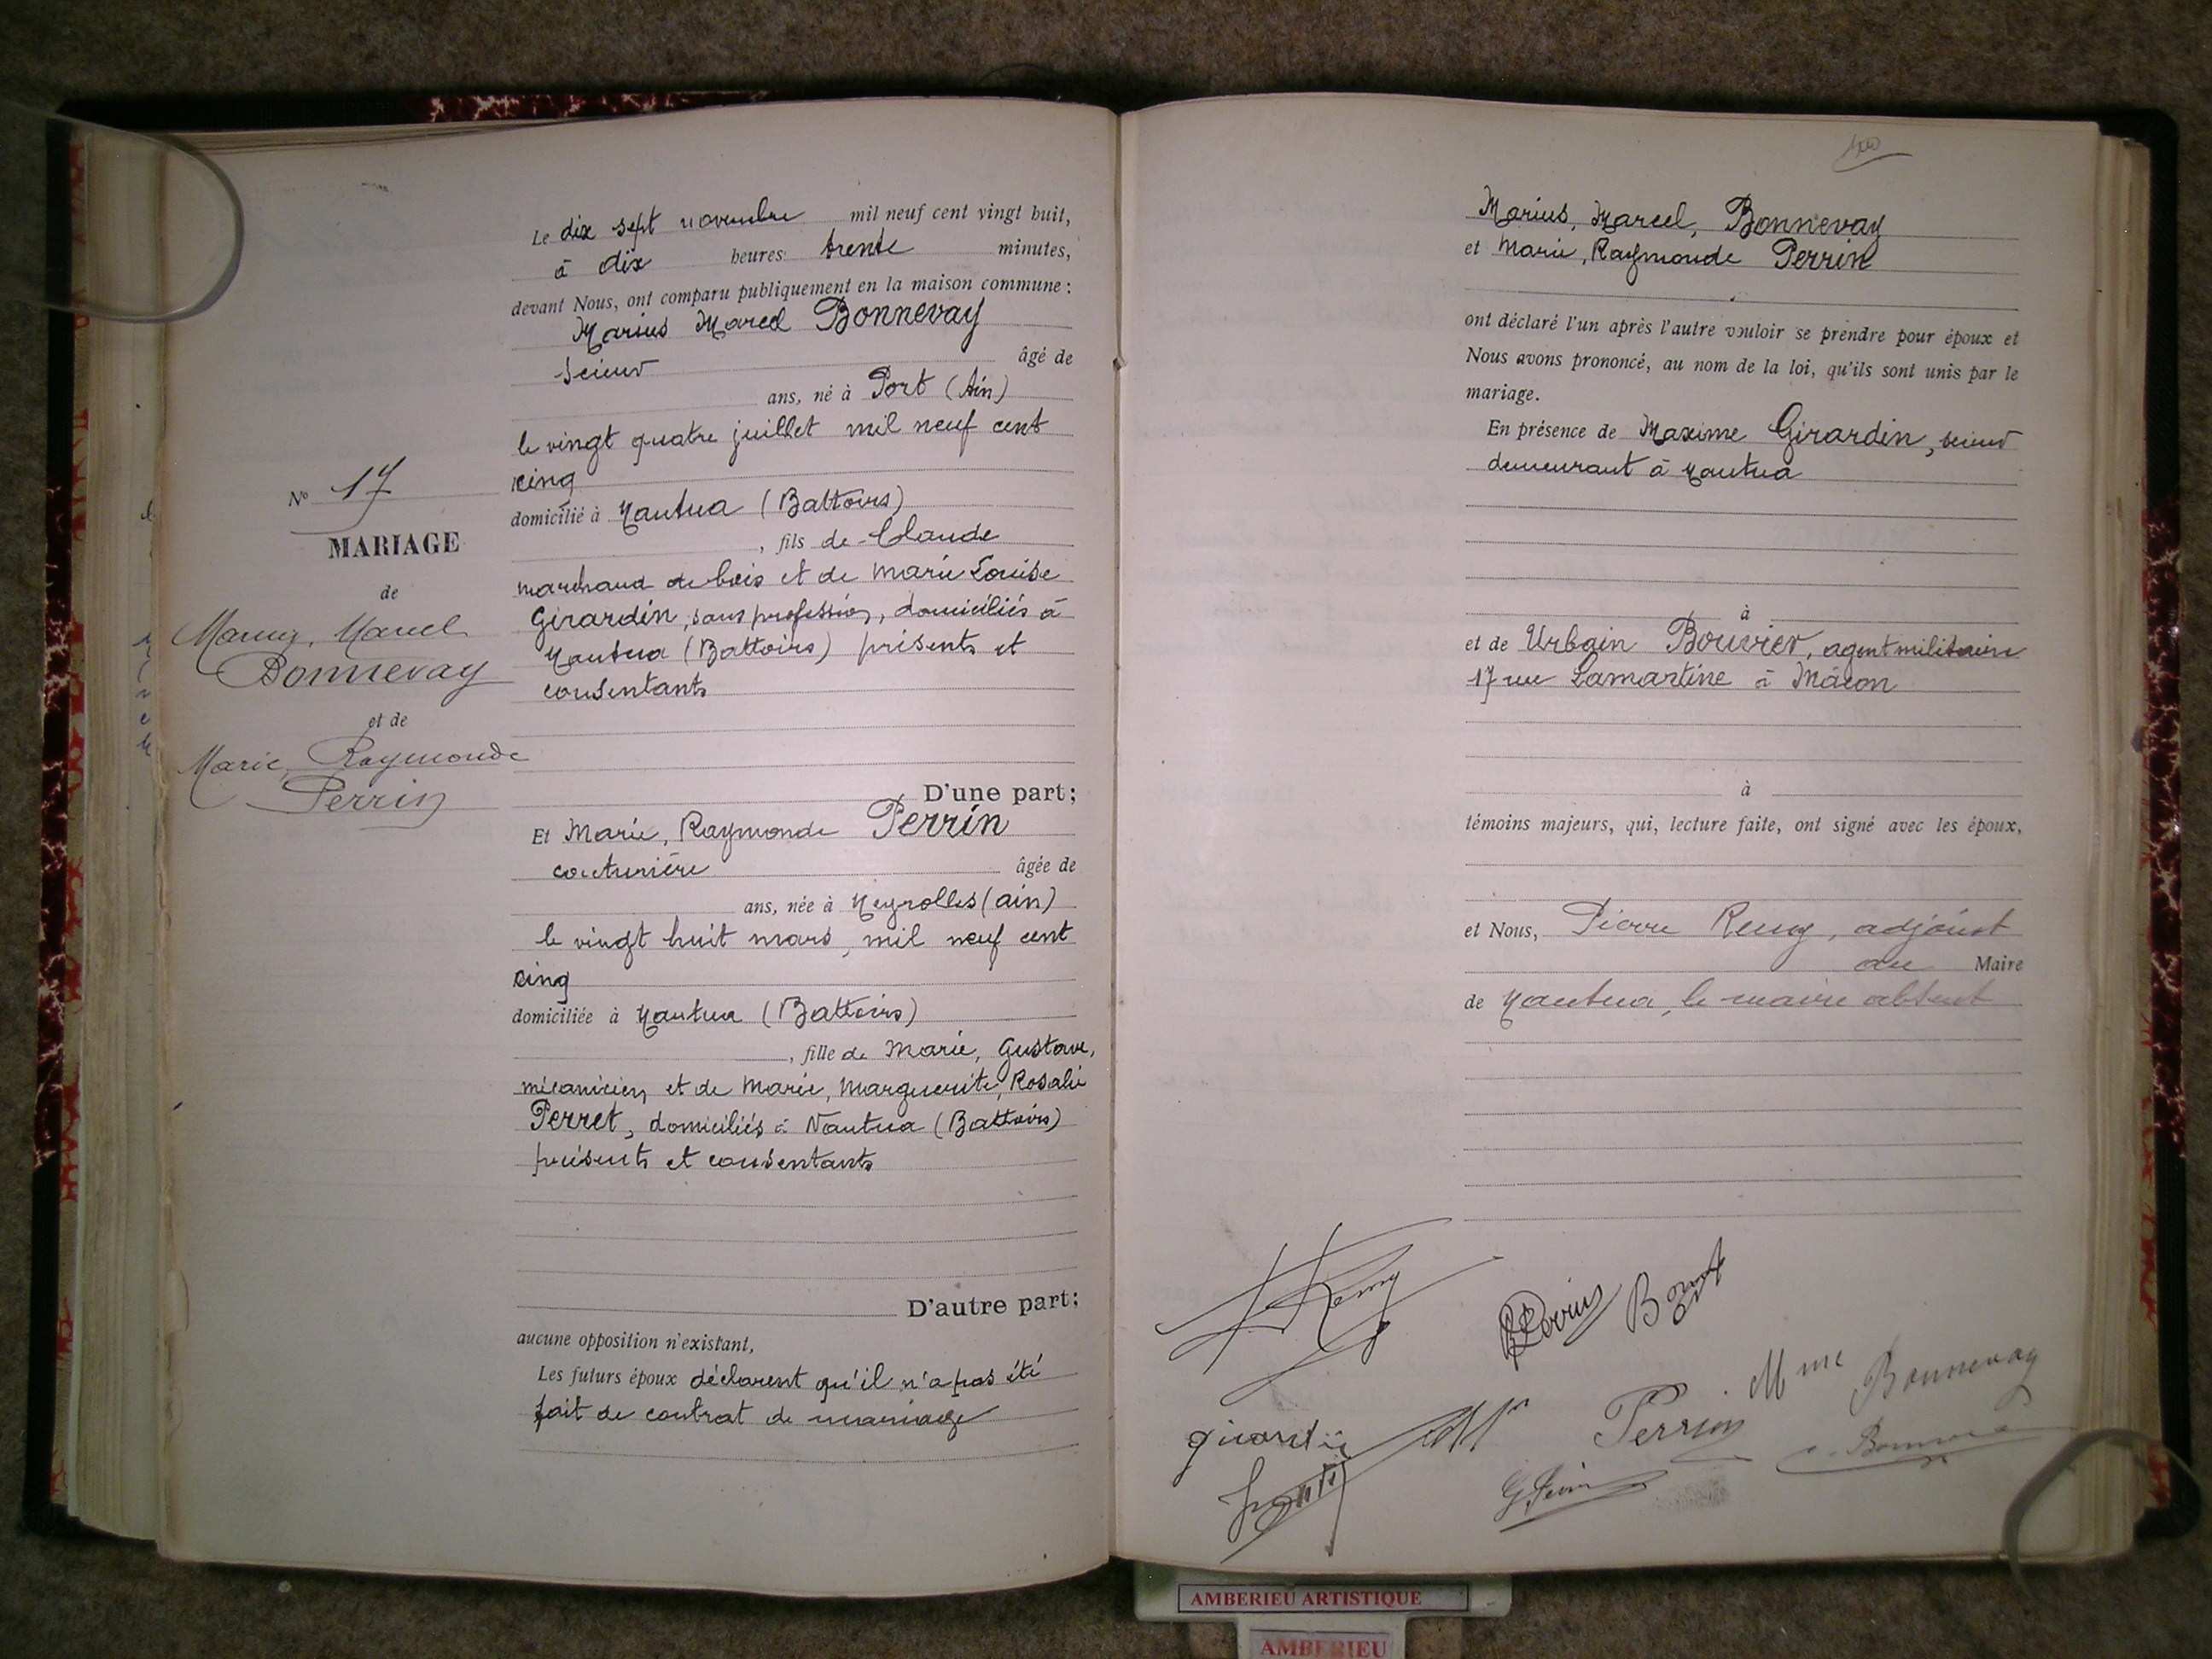 Le dix sept novembre mil neuf cent vingt huit,
à dix heures trente minutes,
devant Nous, ont comparu publiquement en la maison commune :
Marius Marcel Bonnevay
scieur âgé de
ans, né à Port (Ain)
le vingt quatre juillet mil neuf cent
cinq
domicilié à Nantua (Battoirs)
, fils de Claude
marchand de bois et de Marie Louise
Girardin, sans profession, domiciliés à
Nantua (Battoirs) présents et
consentants
D'une part;
Et Marie, Raymonde Perrin
couturière âgée de
ans, née à Neyrolles (ain)
le vingt huit mars, mil neuf cent
cinq
domiciliée à Nantua (Battoirs)
, fille de Marie, Gustave,
mécanicien et de Marie, Marguerite, Rosalie
Perret, domiciliés à Nantua (Battoirs)
présents et consentants
D'autre part;
aucune opposition n'existant,
Les futurs époux déclarent qu'il n'a pas été
fait de contrat de mariage
N° 17
MARIAGE
de
Marius, Marcel
Bonnevay
et de
Marie, Raymonde
Perrin
Marius, Marcel, Bonnevay
et Marie, Raymonde Perrin
ont déclaré l'un après l'autre vouloir se prendre pour époux et
Nous avons prononcé, au nom de la loi, qu'ils sont unis par le
mariage.
En présence de Maxime Girardin, scieur
demeurant à Nantua
à
et de Urbain Bouvier, agent militaire
17 rue Lamartine à Mâcon
à
témoins majeurs, qui, lecture faite, ont signé avec les époux,
et Nous, Pierre Remy, adjoint
au Maire
de Nantua, le maire absent
Remy
R Perrin
girardin
Perrin
Mme Bonnevay
G. Perrin
AMBERIEU ARTISTIQUE
AMBERIEU